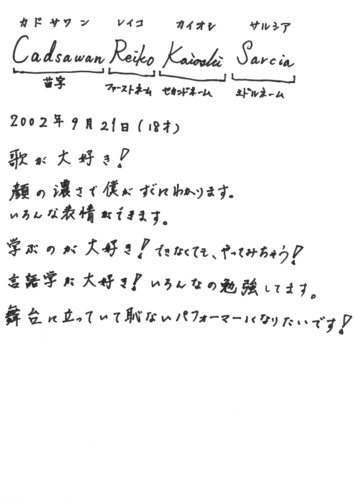 カドサワン レイコ カイオシ サルシア
Cadsawan Reiko Kaioshi Sarcia
苗字 ファーストネーム セカンドネーム ミドルネーム
2002年9月21日(18才)
歌が大好き!
顔の濃さで僕がすぐにわかります。
いろんな表情ができます。
学ぶのが大好き!できなくても、やってみちゃう!
言語学が大好き!いろんなの勉強してます。
舞台に立っていて恥ないパフォーマーになりたいです!